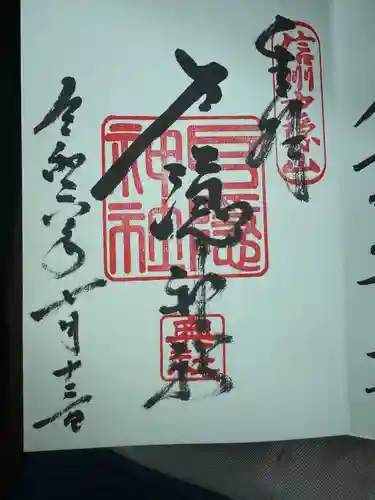 奉拝
信州戸隠山
戸隠神社
戸隠神社
奥社
令和六年七月十三日